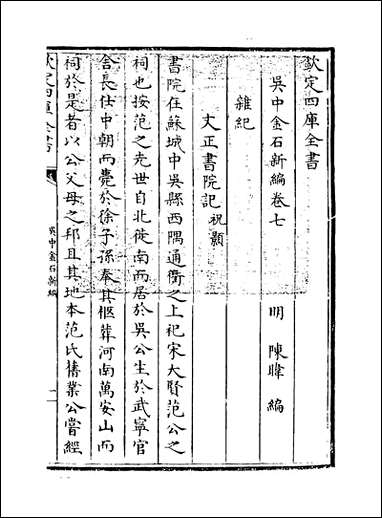 欽定四庫全書
吳中金石新編卷七
明 陳暐 編
雜紀
文正書院記 祝顥
書院在蘇城中吳縣西隅通衢之上祀宋大賢范公之
祠也按范之先世自北徙南而居於吳公生於武寧官
舍長仕中朝而薨於徐子孫奉其柩葬河南萬安山而
祠於是者以公父母之邦且其地本范氏舊業公嘗經
欽定四庫全書
吳中金石新編